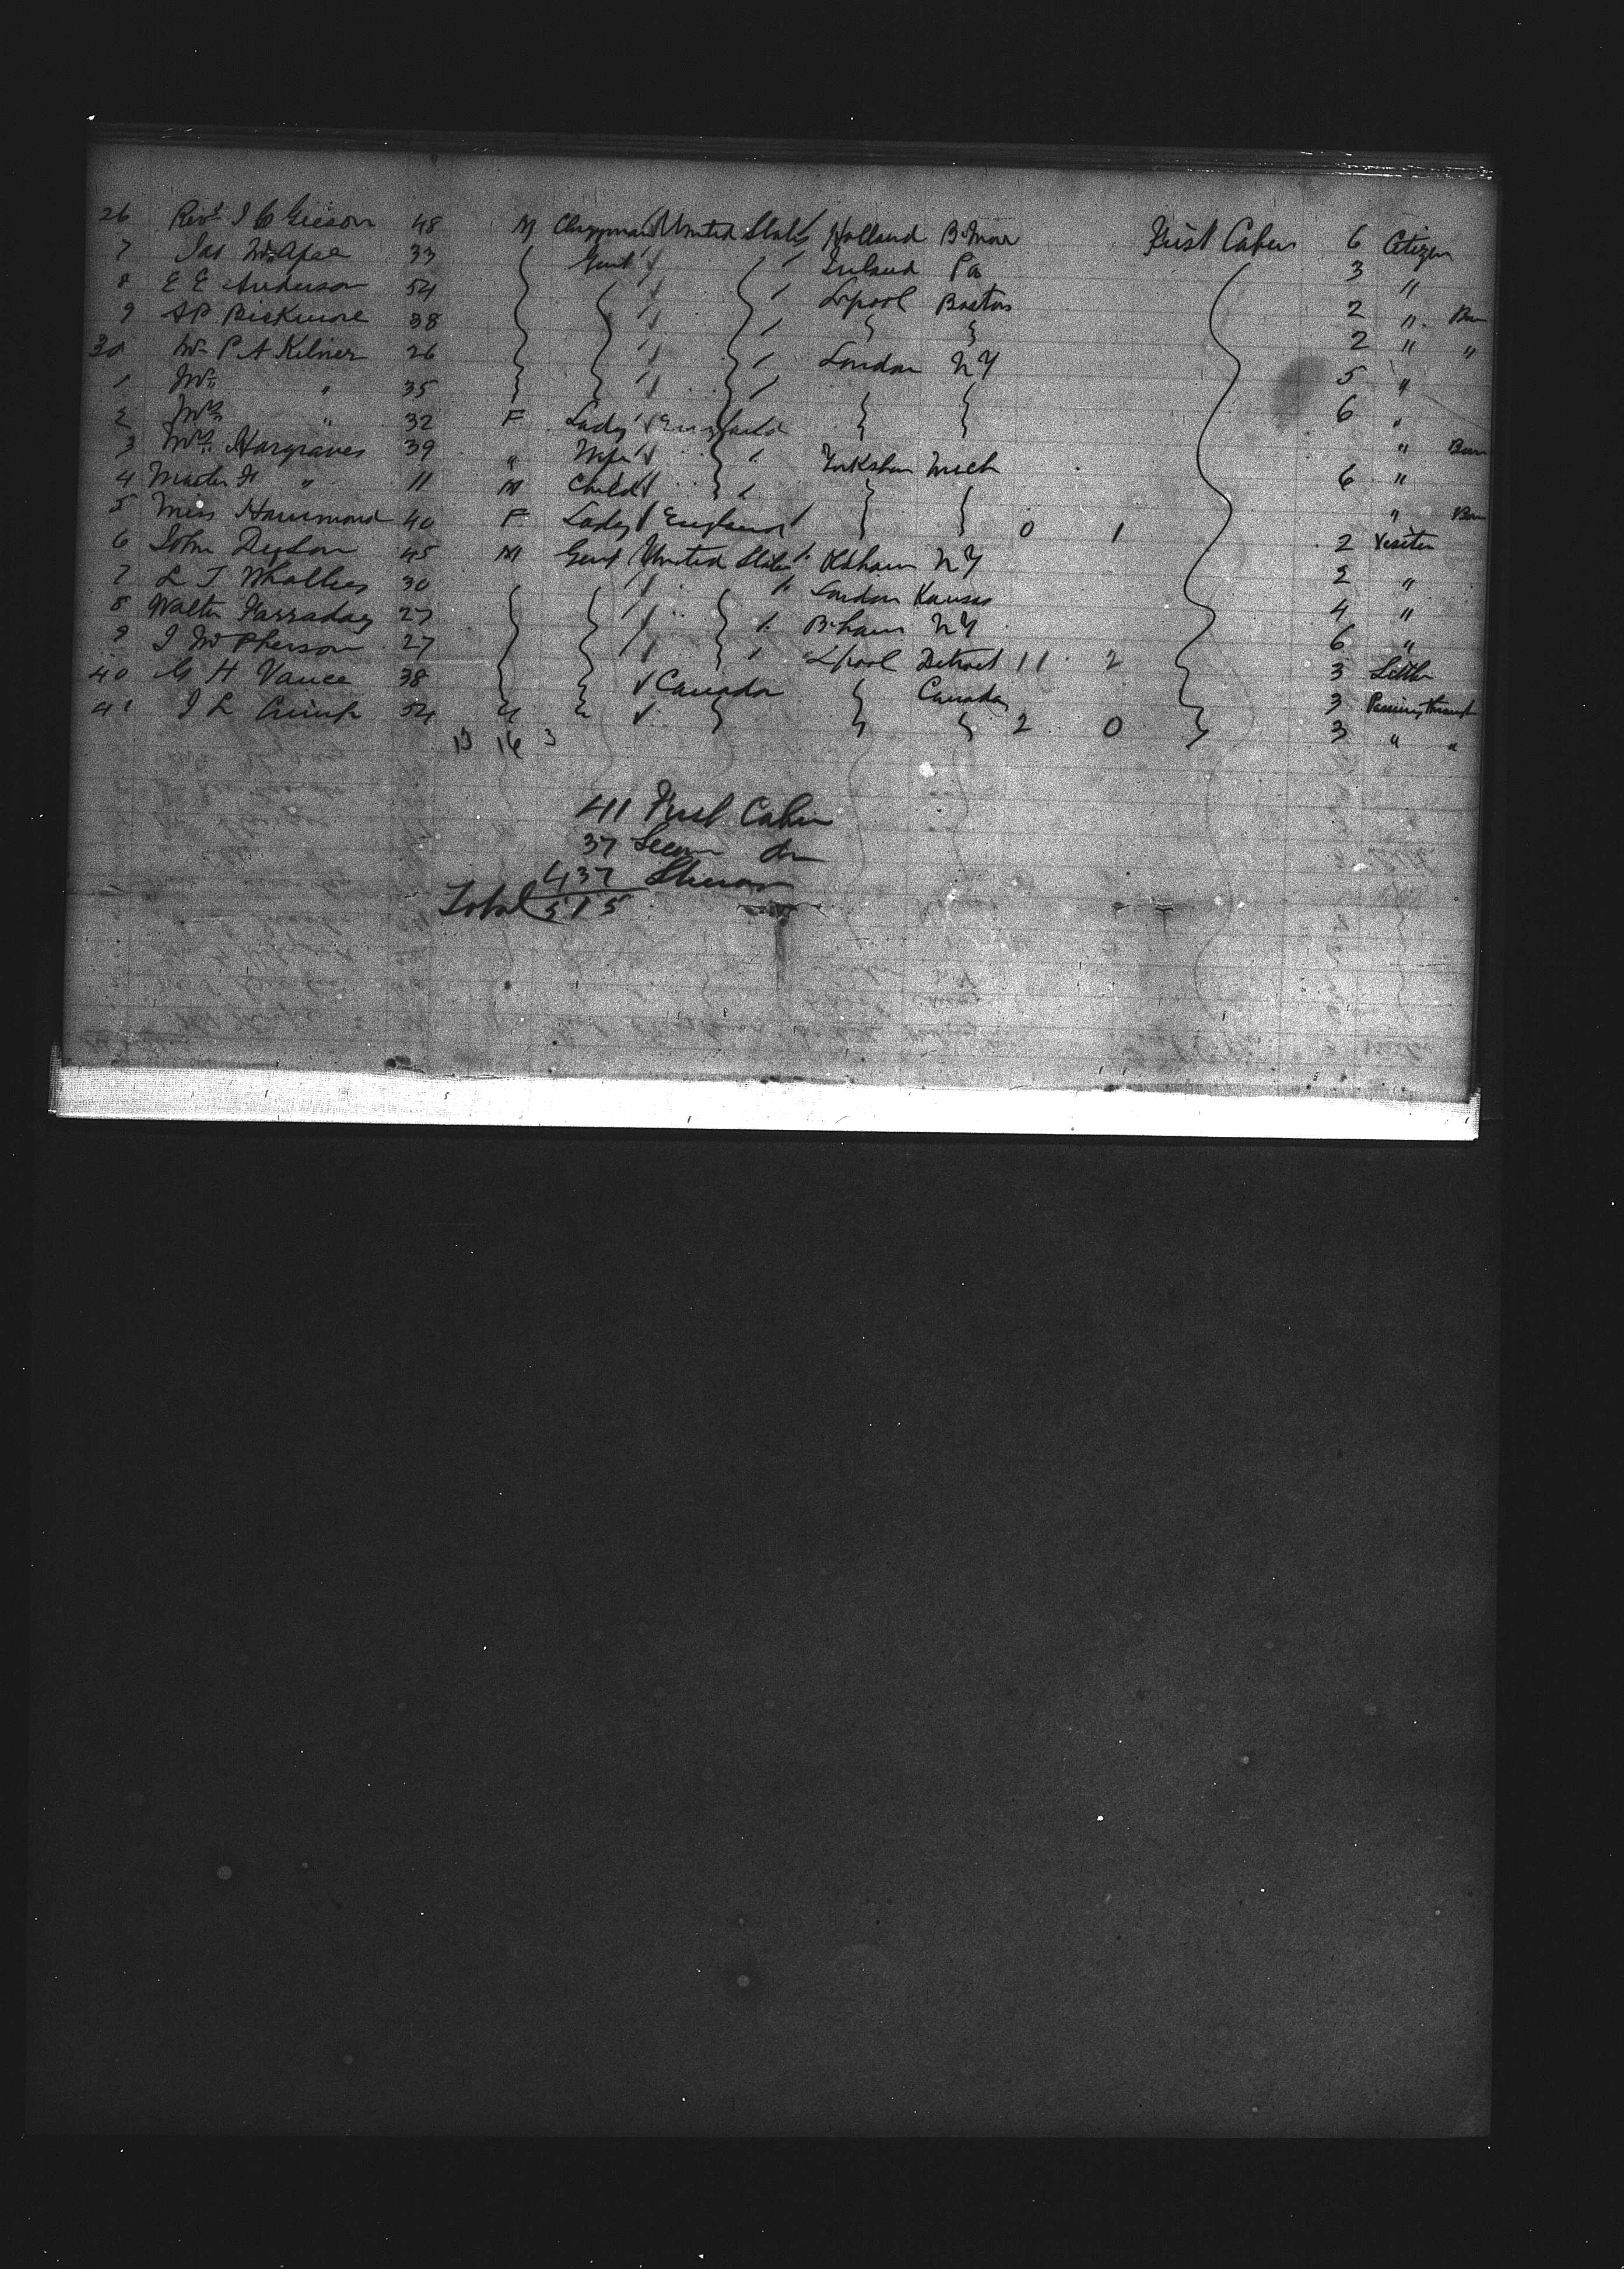 26 Revd J C Gieson 48 M Clergyman United States Holland B'More First Cabin 6 Citizen
7 Jas McAfee 33 Gent Ireland Pa 3 "
8 E E Anderson 54 L'pool Boston 2 "
9 S P Bickmore 38 2 " "
30 Mr P A Kilner 26 London NY 5 "
1 Mr " 35 6 "
2 Mrs " 32 F Lady England "
3 Mrs Hargraves 39 " Wife Yorkshire Mich 6 "
4 Master H " 11 M Child "
5 Miss Hammond 40 F Lady England 0 1 2 Visitor
6 John Dyson 45 M Gent United States NY 2 "
7 L J 30 London Kansas 4 "
8 Walter Farraday 27 B'ham NY 6 "
9 J McPherson 27 L'pool Detroit 11 2 3
40 G H Vance 38 Canada Canada 3 Passing through
41 J L Crimp 54 2 0 3 " "
13 16 3
41 First Cabin
37 Second do
437 Steerage
Total 515